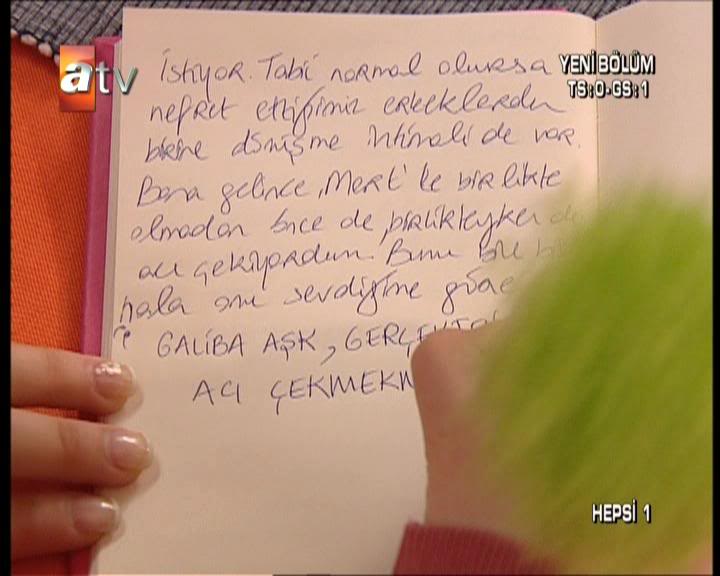 atv
YENİ BÖLÜM
TS:0-GS:1
istiyor. Tabii normal olursa
nefret ettiğimiz erkeklerden
birine dönüşme ihtimali de var.
Bana gelince, Mert'le birlikte
olmadan önce de, birlikteyken de
acı çekiyordum. Bunu bile bile
hala onu sevdiğime göre
GALİBA AŞK,
ACI
HEPSİ 1